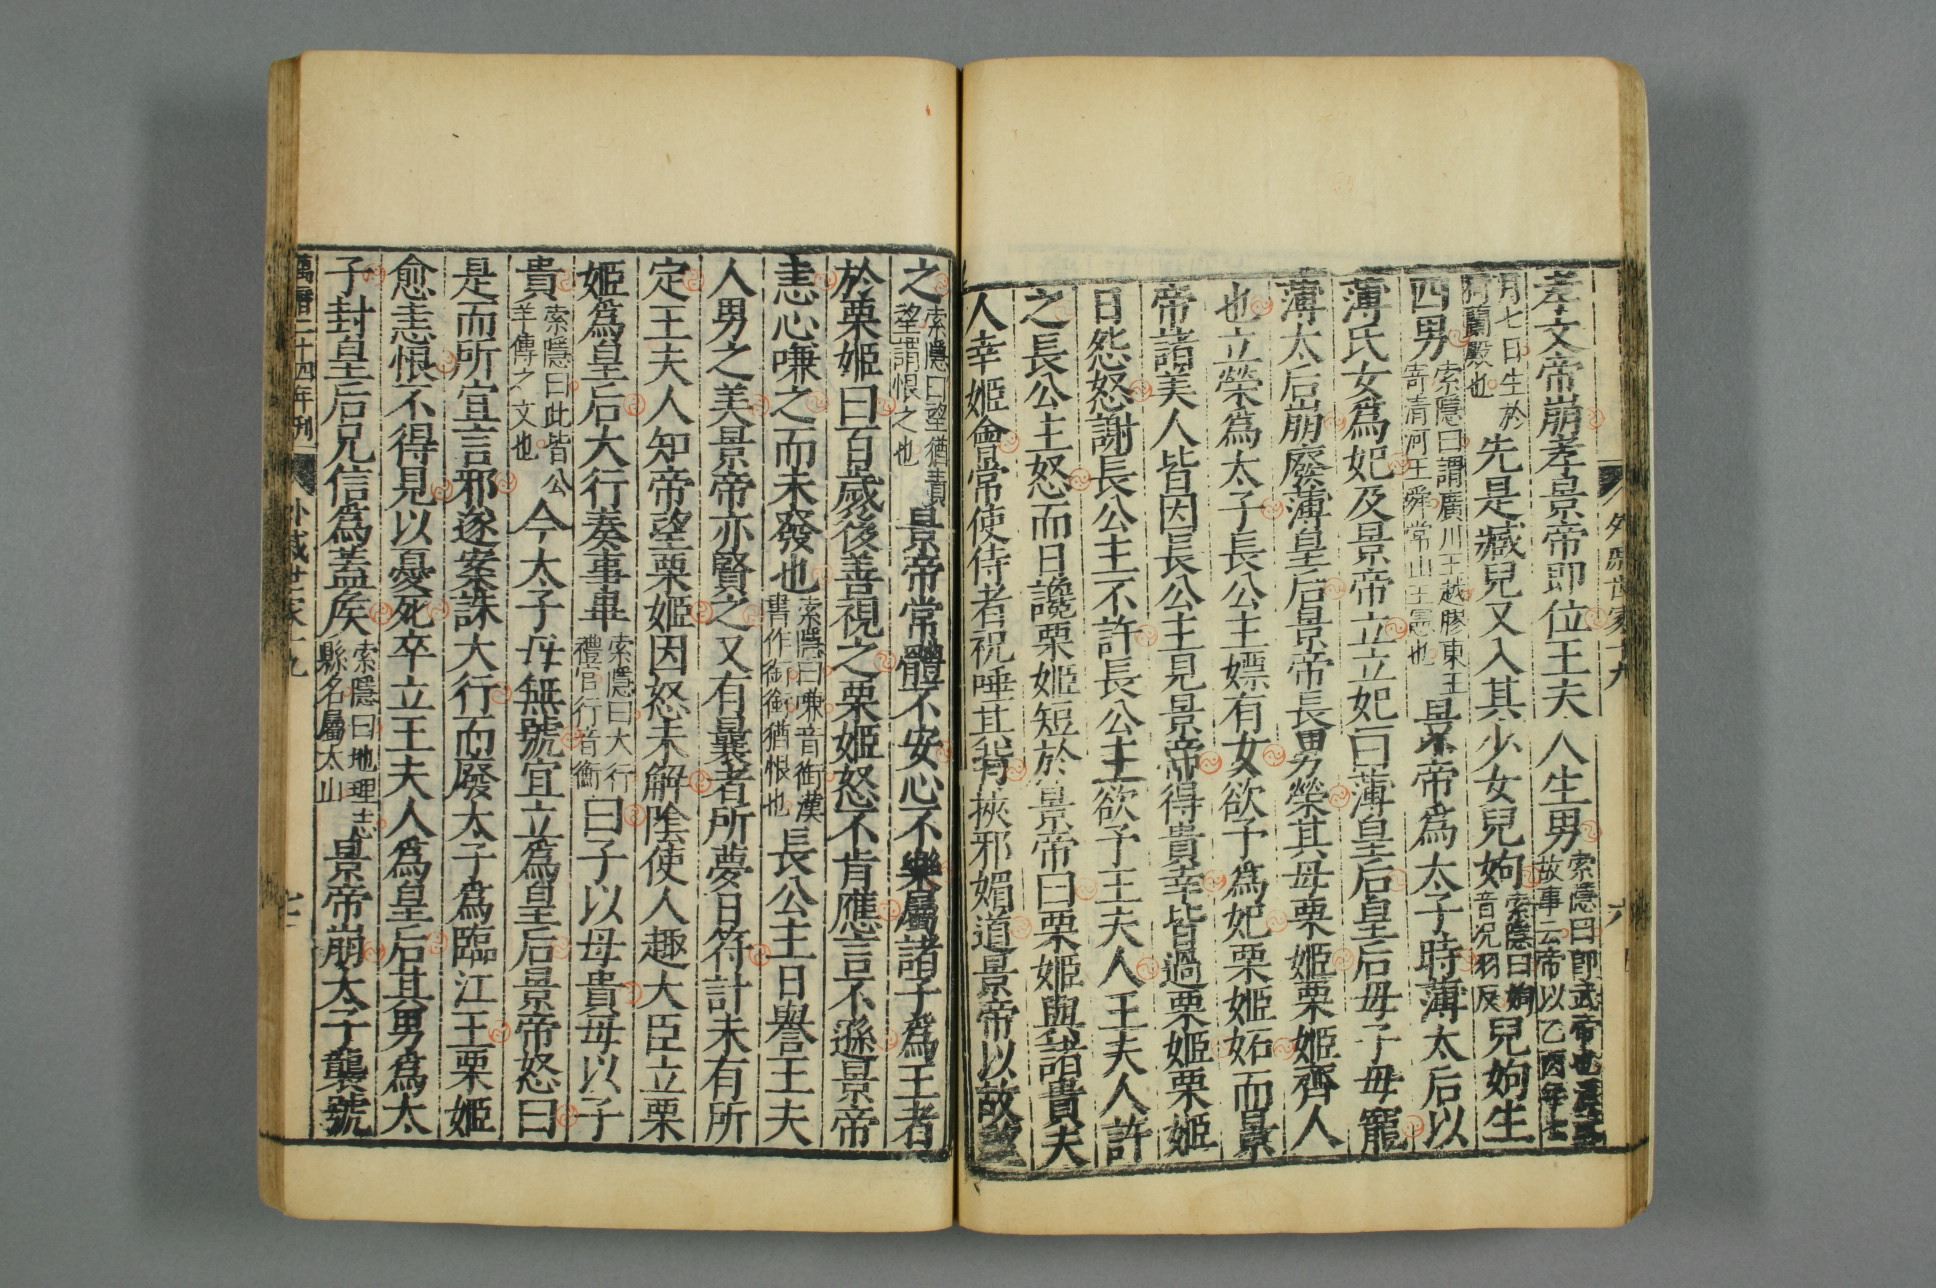 外戚世家十九
六
孝文帝崩孝景帝即位王夫人生男索隱曰即武帝也漢武
故事云帝以乙酉年七
月七日生於
猗蘭殿也先是臧兒又入其少女兒姁索隱曰姁
音况羽反兒姁生
四男索隱曰謂廣川王越膠東王
寄清河王舜常山王憲也景帝爲太子時薄太后以
薄氏女爲妃及景帝立立妃曰薄皇后皇后毋子毋寵
薄太后崩廢薄皇后景帝長男榮其母栗姬栗姬齊人
也立榮爲太子長公主嫖有女欲予爲妃栗姬妬而景
帝諸美人皆因長公主見景帝得貴幸皆過栗姬栗姬
日怨怒謝長公主不許長公主欲予王夫人王夫人許
之長公主怒而日讒栗姬短於景帝曰栗姬與諸貴夫
人幸姬會常使侍者祝唾其背挾邪媚道景帝以故望
之索隱曰望猶責
望謂恨之也景帝常體不安心不樂屬諸子爲王者
於栗姬曰百歲後善視之栗姬怒不肯應言不遜景帝
恚心嗛之而未發也索隱曰嗛音銜漢
書作銜銜猶恨也長公主日譽王夫
人男之美景帝亦賢之又有曩者所夢日符計未有所
定王夫人知帝望栗姬因怒未解陰使人趣大臣立栗
姬爲皇后大行奏事畢索隱曰大行
禮官行音衡曰子以母貴母以子
貴索隱曰此皆公
羊傳之文也今太子母無號宜立爲皇后景帝怒曰
是而所宜言邪遂案誅大行而廢太子爲臨江王栗姬
愈恚恨不得見以憂死卒立王夫人爲皇后其男爲太
子封皇后兄信爲蓋矦索隱曰地理志
縣名屬太山景帝崩太子襲號
萬曆二十四年刊
外戚世家十九
七